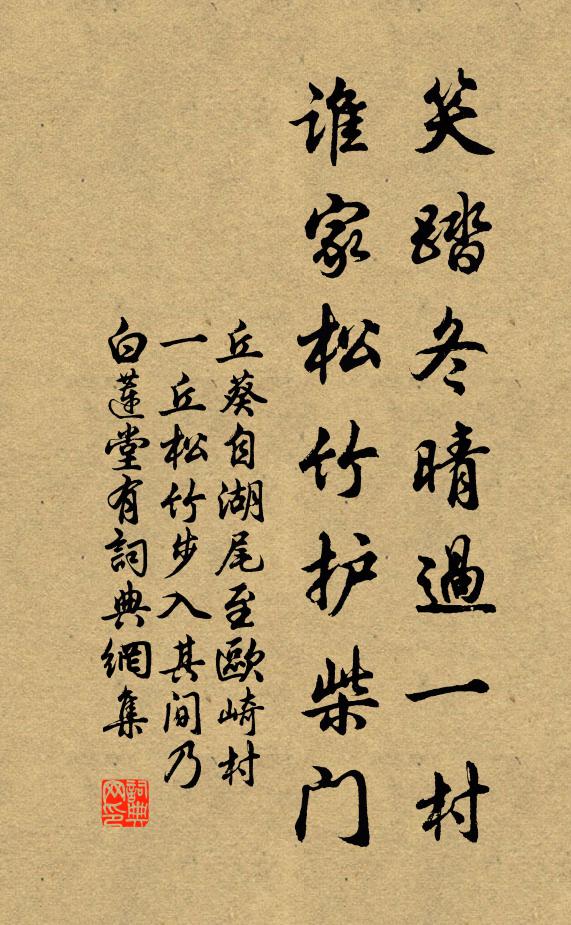 笑踏冬晴過一村
谁家松竹护柴门
丘葵自湖尾至歐崎村
一丘松竹步入其间乃
白蓮堂有詞典網集
詞典
网印